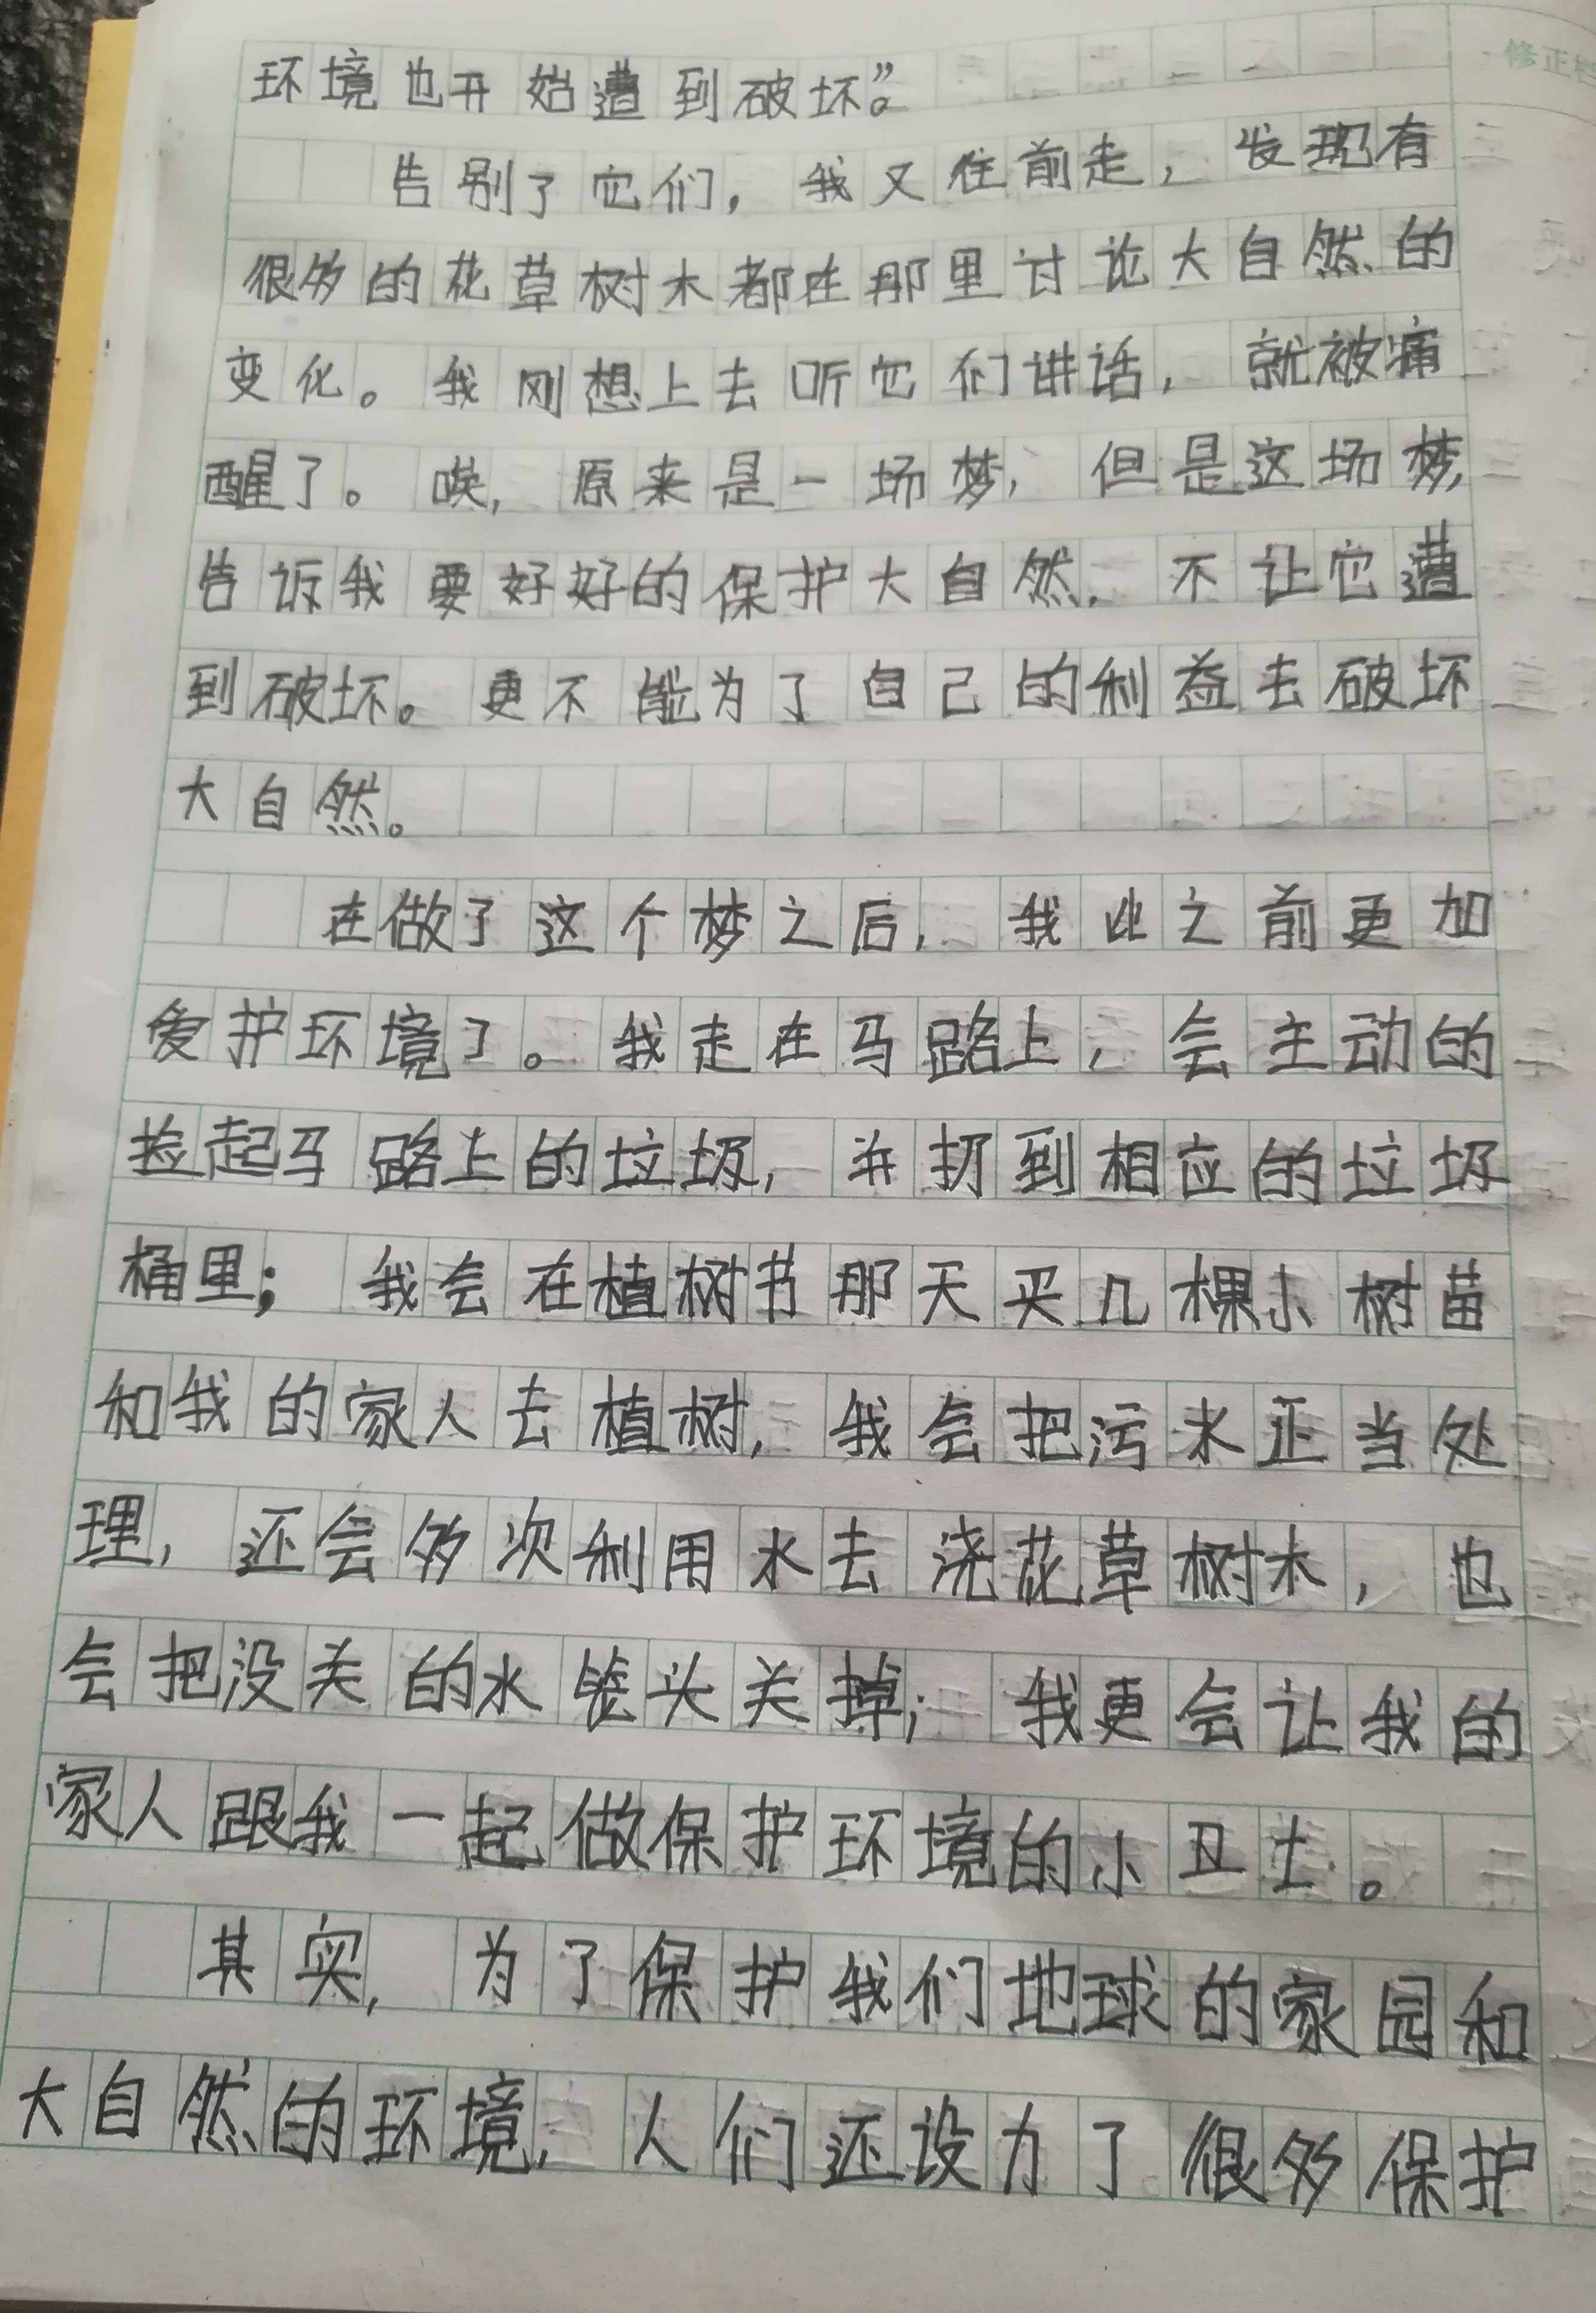 修正栏
环境也开始遭到破坏”。
告别了它们，我又往前走，发现有
很多的花草树木都在那里讨论大自然的
变化。我刚想上去听它们讲话，就被痛
醒了。唉，原来是一场梦，但是这场梦，
告诉我要好好的保护大自然，不让它遭
到破坏。更不能为了自己的利益去破坏
大自然。
在做了这个梦之后，我比之前更加
爱护环境了。我走在马路上，会主动的
捡起马路上的垃圾，并扔到相应的垃圾
桶里；我会在植树节那天买几棵小树苗
和我的家人去植树，我会把污水正当处
理，还会多次利用水去浇花草树木，也
会把没关的水龙头关掉；我更会让我的
家人跟我一起做保护环境的小卫士。
其实，为了保护我们地球的家园和
大自然的环境，人们还设力了很多保护